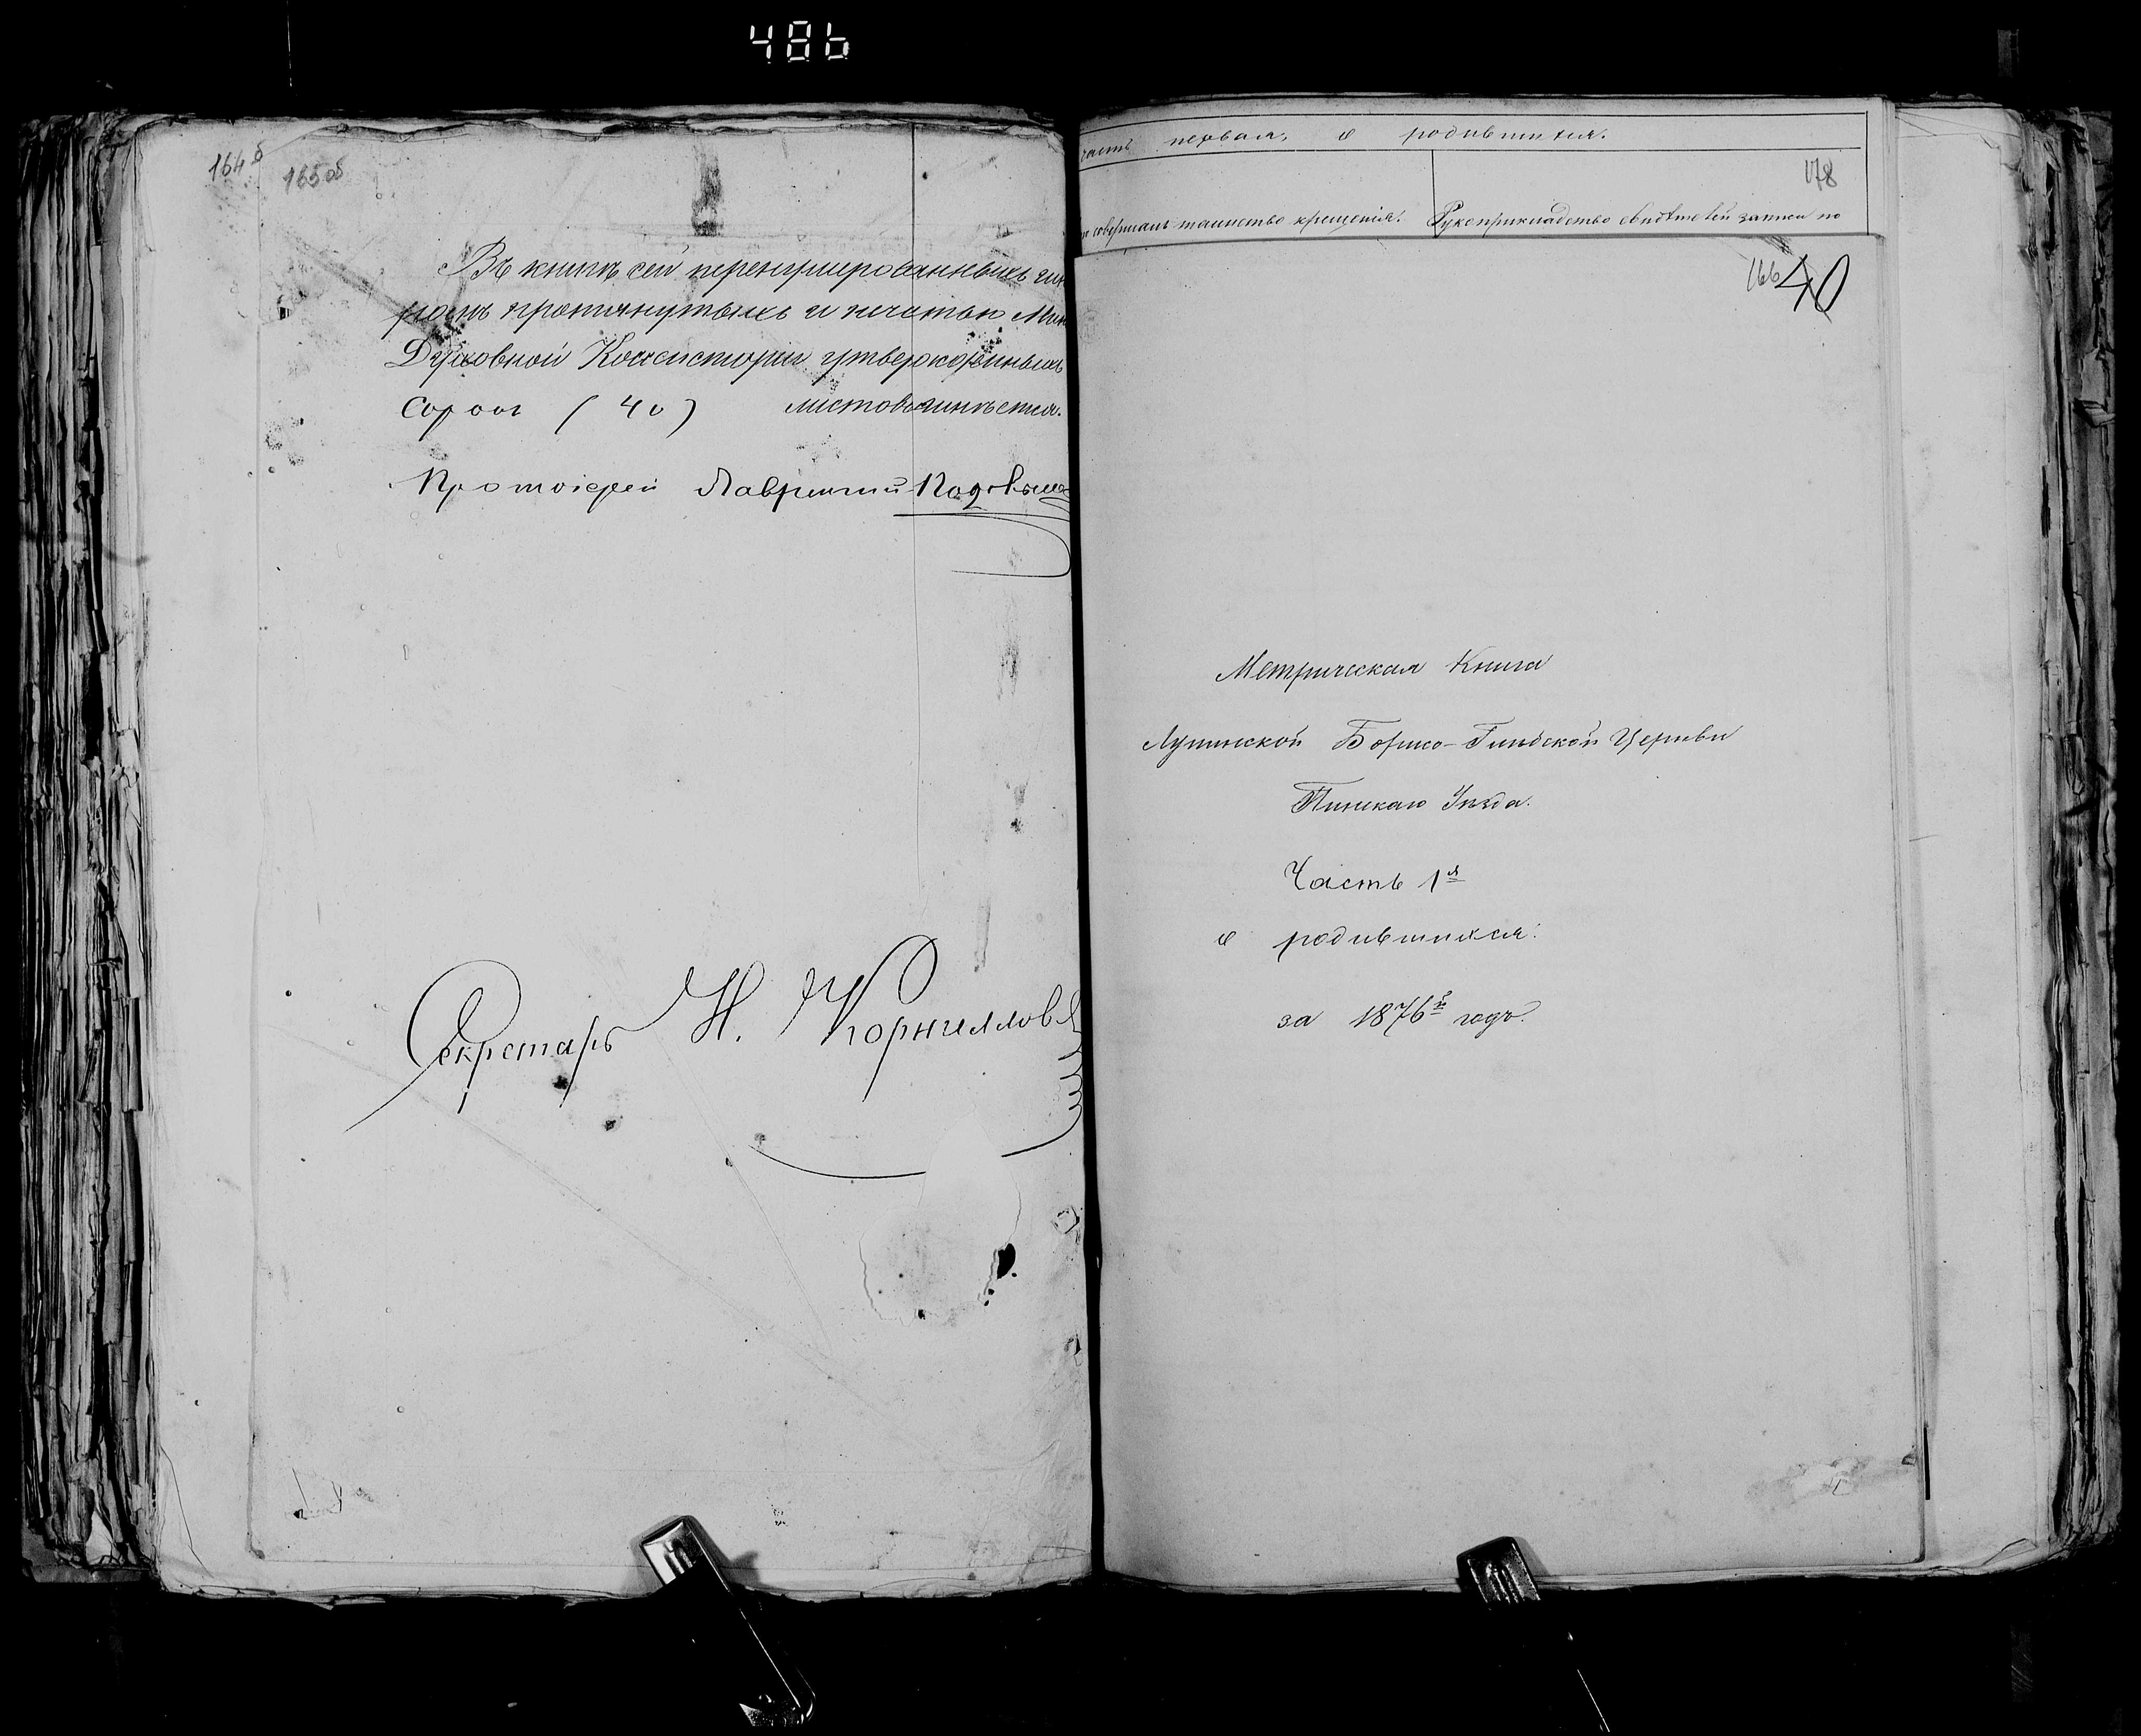 486
164б
165об
Въ книгѣ сей перенумерованныхъ шну
ромъ протянутыхъ и печатью Мин
Духовной Консисторіи утвержденныхъ
сорокъ (40) листовъ имѣется.
Протоіерей Лаврентій
Секретарь Н. Корнилловъ
часть первая, о родившихся.
178
совершалъ таинство крещенія. Рукоприкладство свидѣтелей записи по
166 40
Метрическая Книга
Лунинской Борисо-Глѣбской Церкви
Пинскаго Уѣзда.
Часть 1я
о родившихся:
за 1876й годъ.